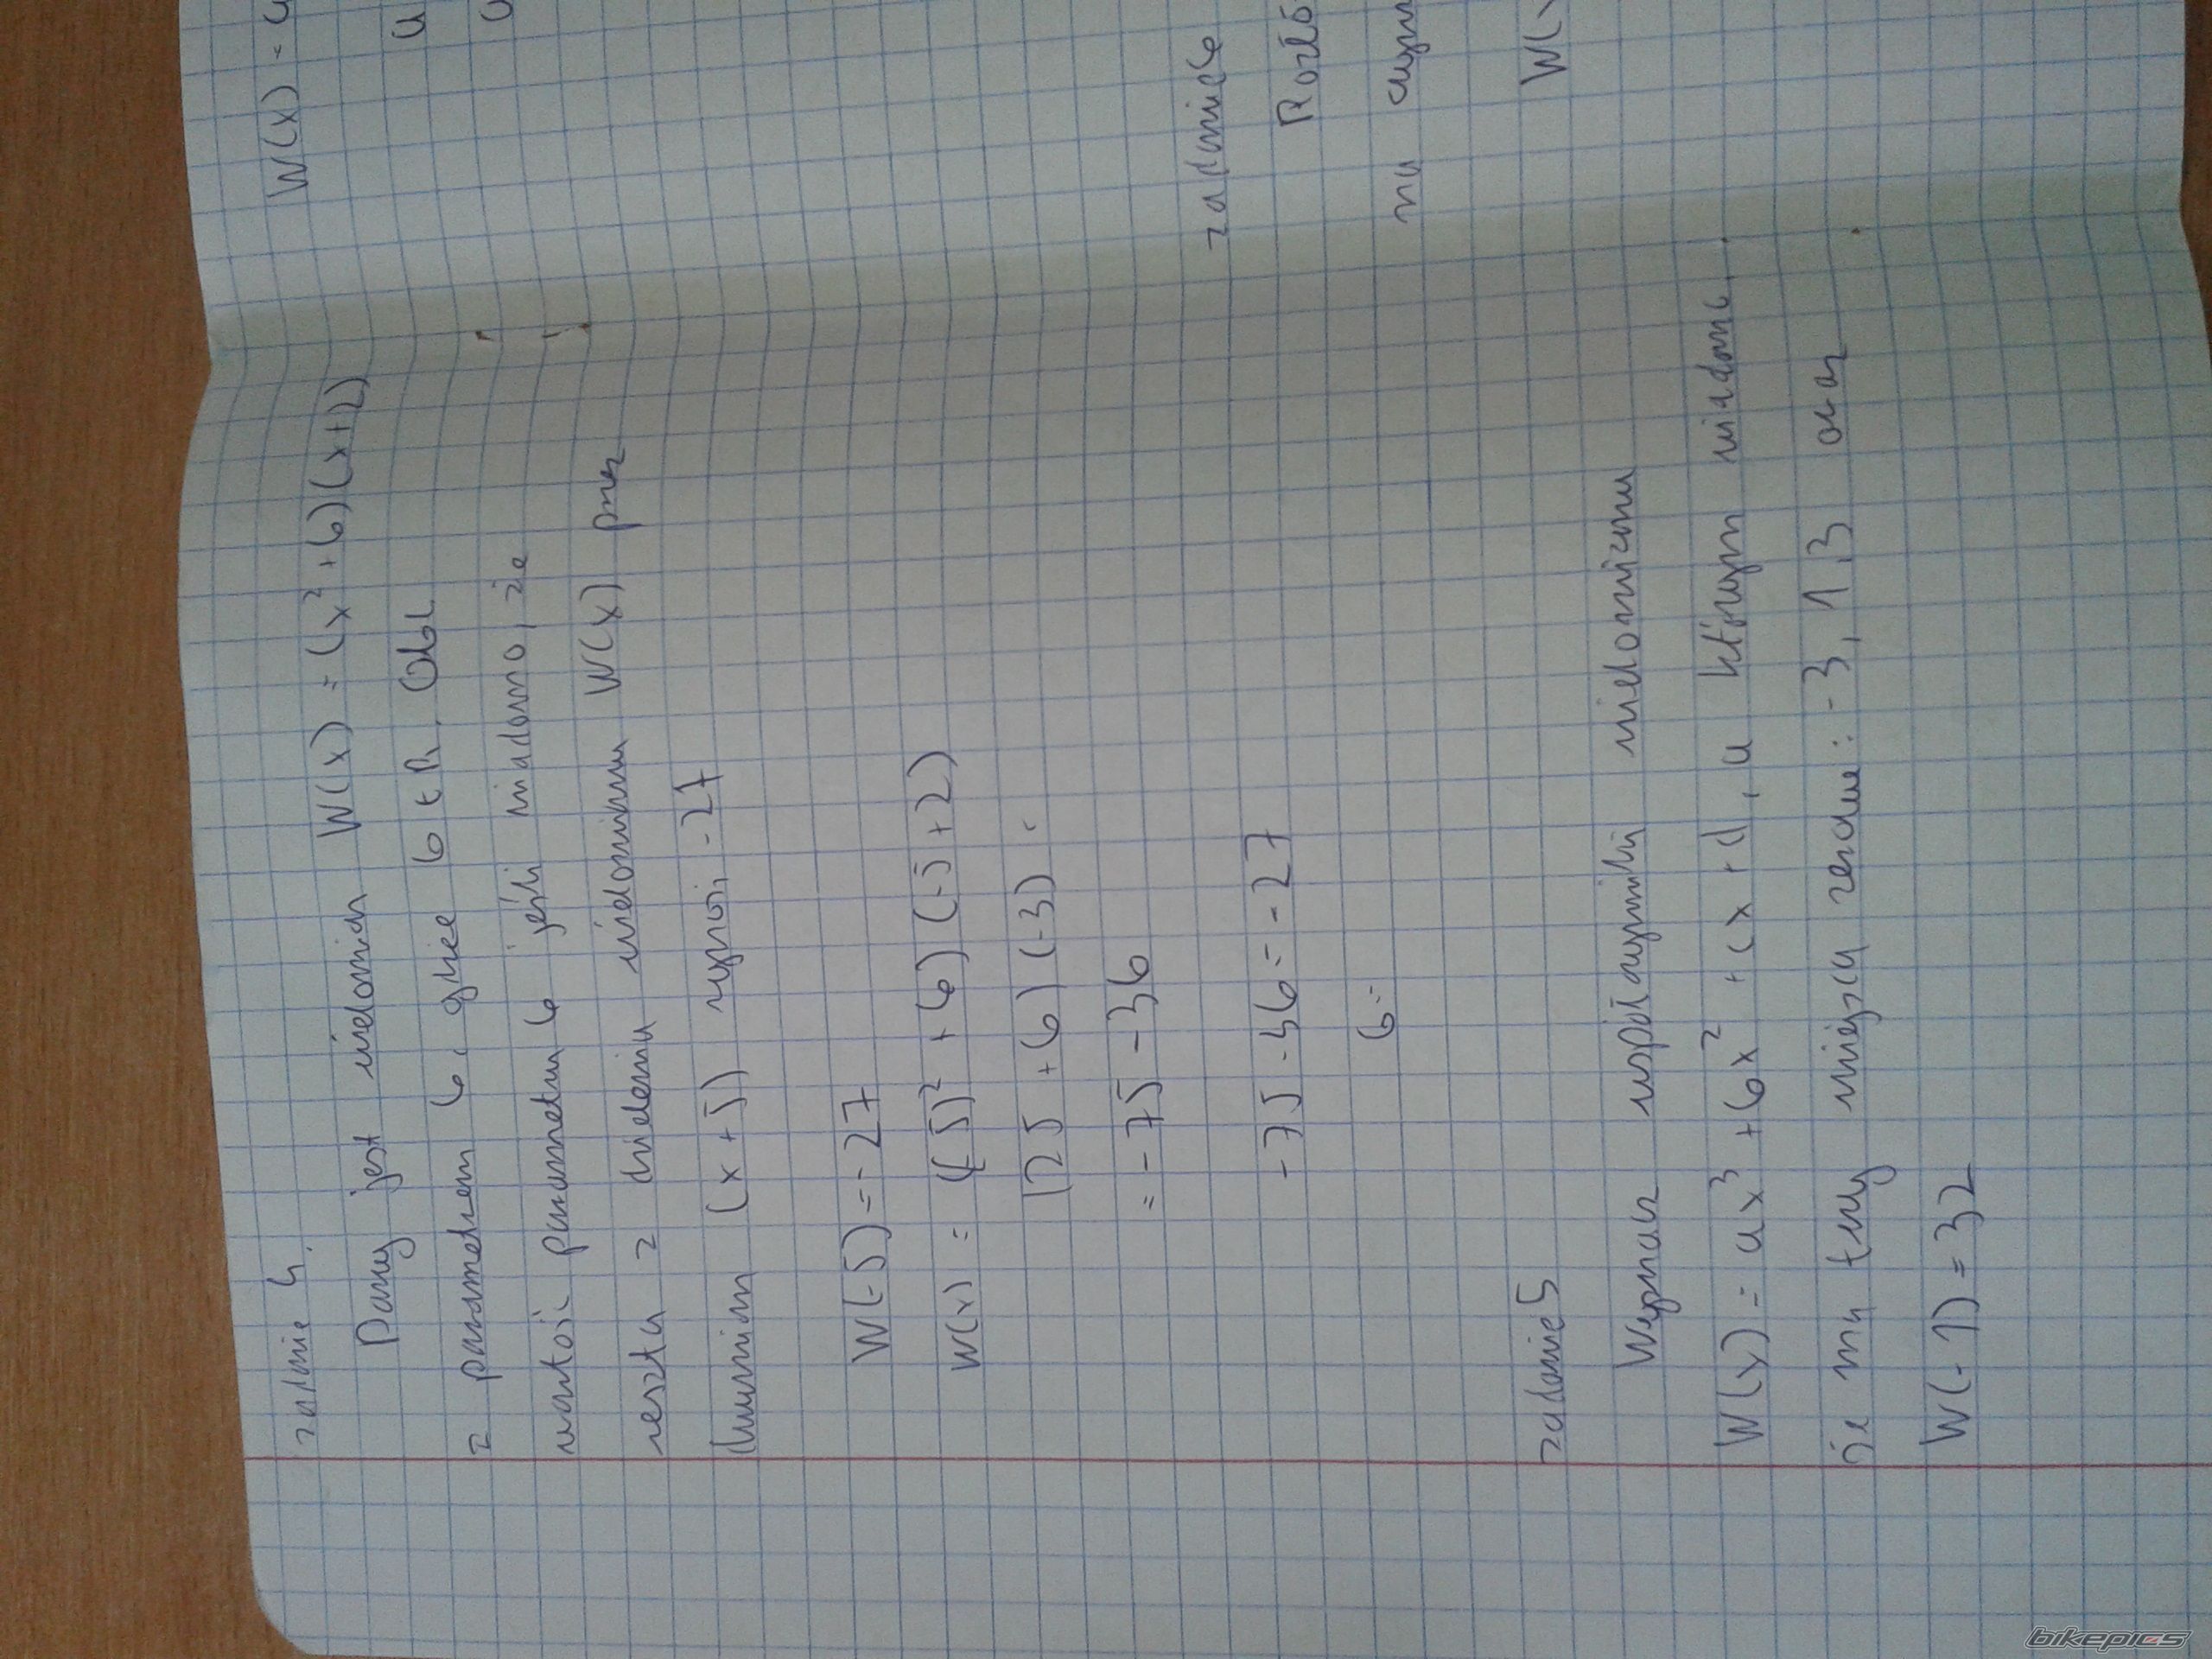 zadanie 4.
Dany jest wielomian W(x) = (x² + b)(x+2)
z parametrem b, gdzie b ∈ R. Obl.
wartość parametru b jeśli wiadomo, że
reszta z dzielenia wielomianu W(x) przez
dwumian (x+5) wynosi -27
W(-5) = -27
W(x) = (-5)² + b)(-5+2)
(25 + b)(-3) =
= -75 - 3b
-75 - 3b = -27
b =
zadanie 5
Wyznacz współczynniki wielomianu
W(x) = ax³ + bx² + cx + d, o którym wiadomo,
że ma trzy miejsca zerowe: -3, 1, 3 oraz
W(-1) = 32
W(x) =
zadanie 6
na czynn
W(x
bikepics